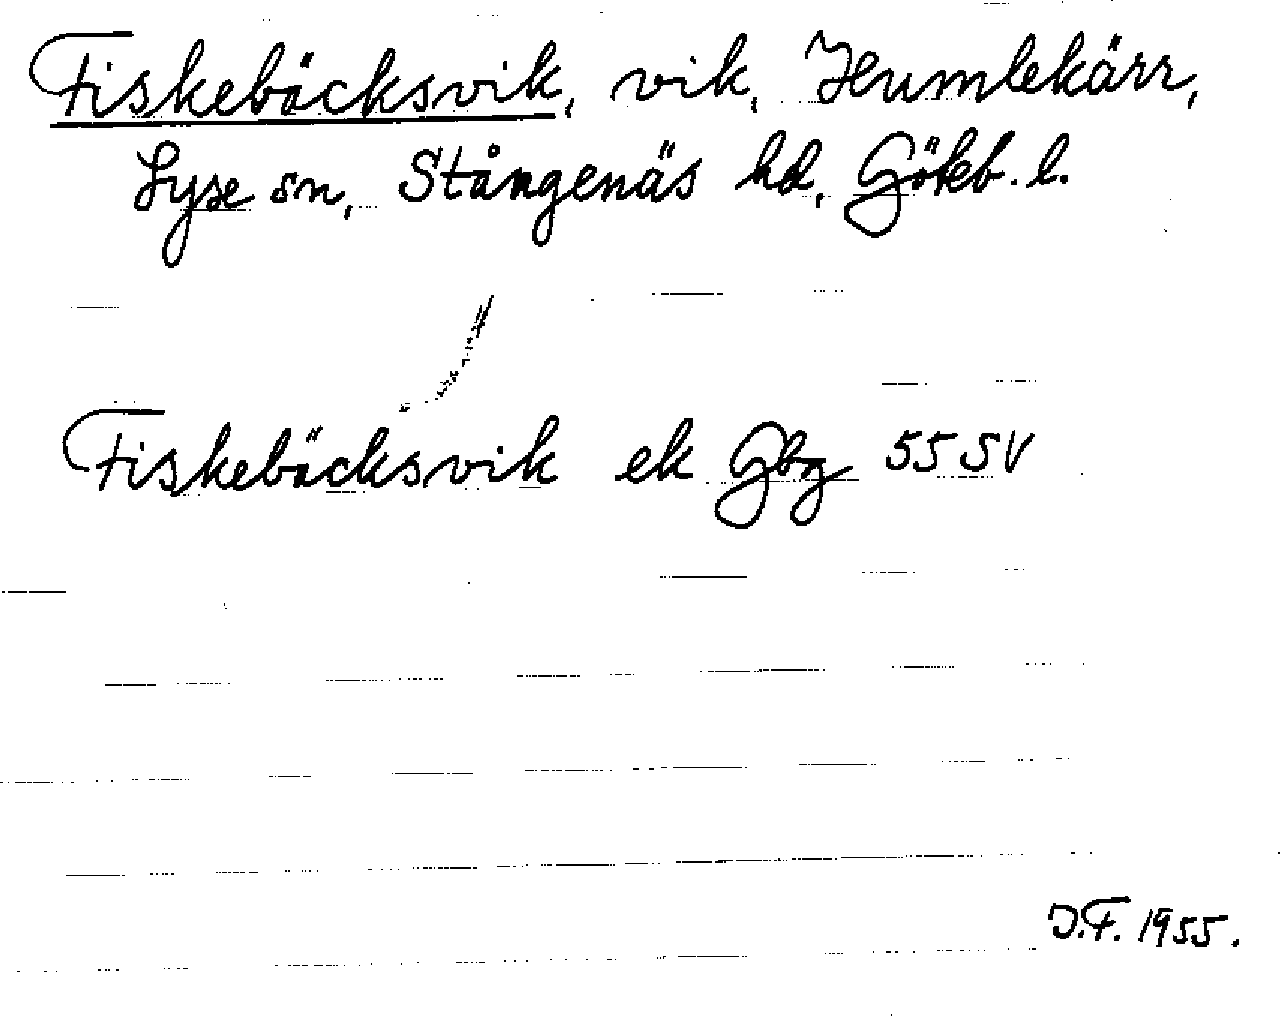 Fiskebäcksvik, vik, Humlekärr,
Lyse sn, Stångenäs hd, Göteb. l.
Fiskebäcksvik ek Gbg 55 SV
J.F. 1955.